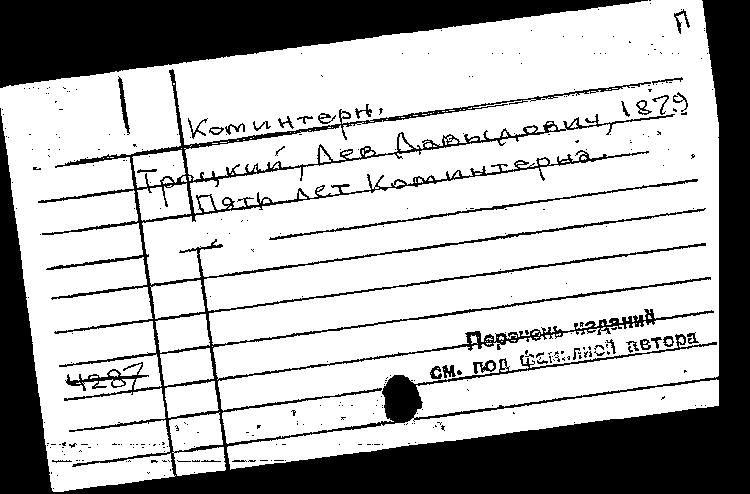 П
Коминтерн.
Троцкий, Лев Давыдович, 1879
Пять лет Коминтерна.
Перечень изданий
см. под фамилией автора
4287